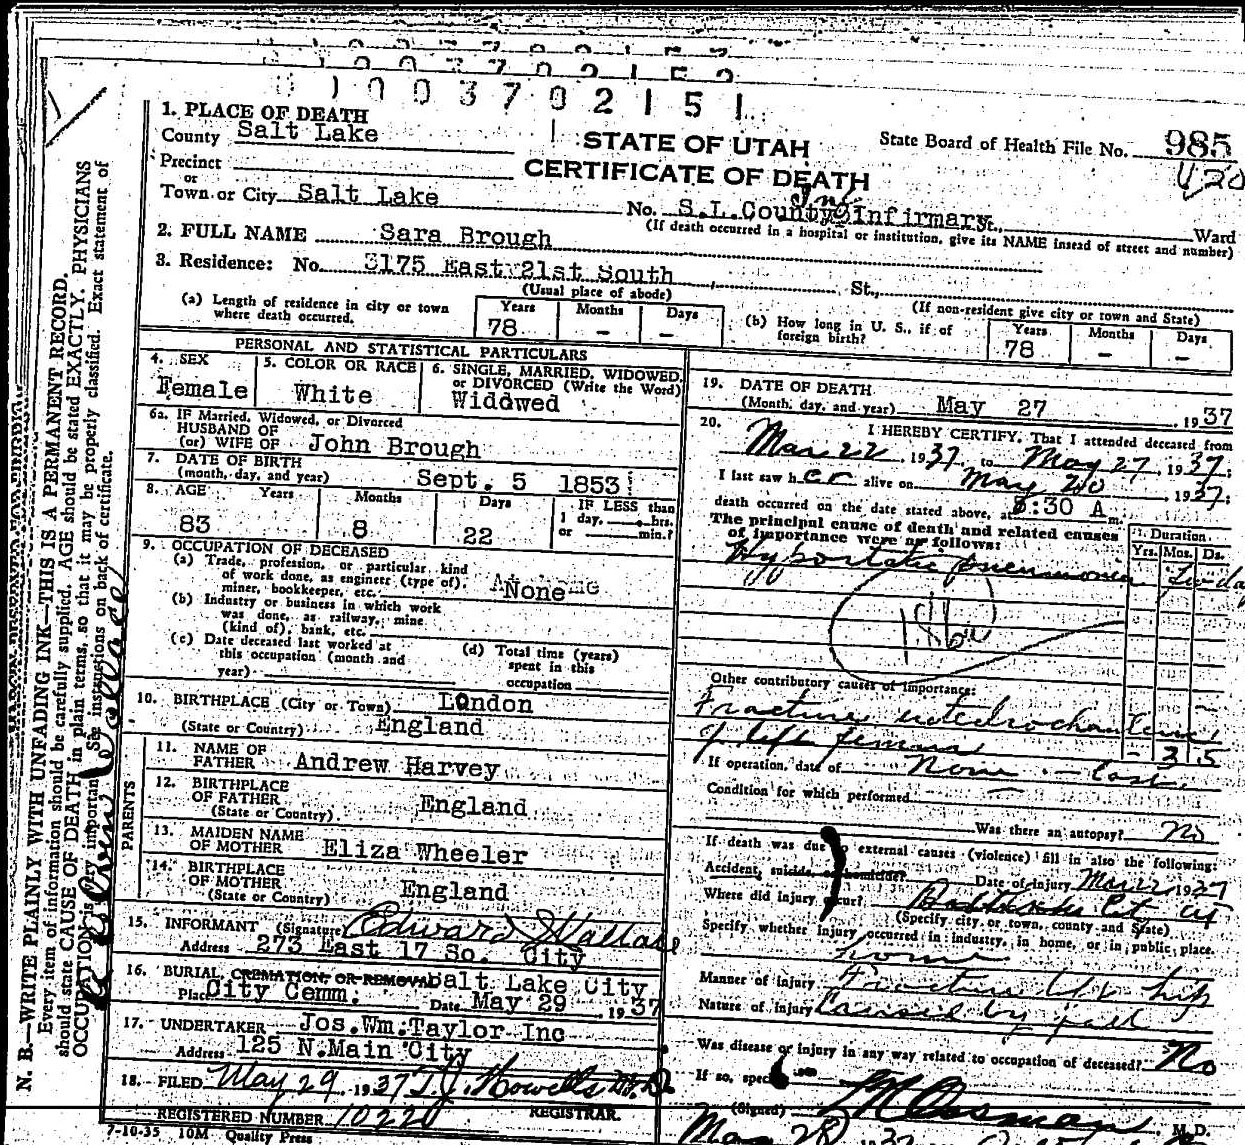 1003702151
1. PLACE OF DEATH
County Salt Lake
STATE OF UTAH
CERTIFICATE OF DEATH
State Board of Health File No. 985
Precinct
or
Town or City Salt Lake
No. S.L.County Infirmary St., Ward
(If death occurred in a hospital or institution, give its NAME instead of street and number)
2. FULL NAME Sara Brough
3. Residence: No. 3175 East 21st South St.,
(Usual place of abode)
(If non-resident give city or town and State)
(a) Length of residence in city or town where death occurred.
Years Months Days
78 - -
(b) How long in U. S., if of foreign birth?
Years Months Days
78 - -
PERSONAL AND STATISTICAL PARTICULARS
4. SEX
Female
5. COLOR OR RACE
White
6. SINGLE, MARRIED, WIDOWED, or DIVORCED (Write the Word)
Widdwed
6a. IF Married, Widowed, or Divorced
HUSBAND OF
(or) WIFE OF John Brough
7. DATE OF BIRTH
(month, day, and year) Sept. 5 1853
8. AGE Years Months Days
83 8 22
IF LESS than
1 day, hrs.
or min.?
9. OCCUPATION OF DECEASED
(a) Trade, profession, or particular kind
of work done, as engineer (type of),
miner, bookkeeper, etc. None
(b) Industry or business in which work
was done, as railway, mine
(kind of), bank, etc.
(c) Date deceased last worked at
this occupation (month and
year)
(d) Total time (years)
spent in this
occupation
10. BIRTHPLACE (City or Town) London
(State or Country) England
PARENTS
11. NAME OF
FATHER Andrew Harvey
12. BIRTHPLACE
OF FATHER England
(State or Country)
13. MAIDEN NAME
OF MOTHER Eliza Wheeler
14. BIRTHPLACE
OF MOTHER England
(State or Country)
15. INFORMANT (Signature) Edward J Wallace
Address 273 East 17 So. City
16. BURIAL, CREMATION, OR REMOVAL Salt Lake City
Place City Cemm. Date May 29 1937
17. UNDERTAKER Jos.Wm.Taylor Inc
Address 125 N.Main City
18. FILED May 29 1937 T.J. Howells M.D.
REGISTRAR.
REGISTERED NUMBER 10220
7-10-35 10M Quality Press
19. DATE OF DEATH
(Month, day, and year) May 27 1937
20. I HEREBY CERTIFY, That I attended deceased from
Mar 22, 1937, to May 27, 1937;
I last saw her alive on May 20 1937;
death occurred on the date stated above, at 8:30 A m.
The principal cause of death and related causes
of importance were as follows:
Duration
Yrs. Mos. Ds.
Hypostatic pneumonia
Other contributory causes of importance:
Fracture
of left femur - 3 5
If operation, date of None - Cast
Condition for which performed
Was there an autopsy? No
If death was due to external causes (violence) fill in also the following:
Accident, suicide, or homicide? Date of injury Mar 22 1937
Where did injury occur?
(Specify city, or town, county and State)
Specify whether injury occurred in industry, in home, or in public place.
home
Manner of injury Fracture left hip
Nature of injury Caused by fall
Was disease or injury in any way related to occupation of deceased? No
If so, specify
(Signed) M. D.
May 28 1937
N. B.—WRITE PLAINLY WITH UNFADING INK—THIS IS A PERMANENT RECORD.
Every item of information should be carefully supplied. AGE should be stated EXACTLY. PHYSICIANS
should state CAUSE OF DEATH in plain terms, so that it may be properly classified. Exact statement of
OCCUPATION is very important. See instructions on back of certificate.